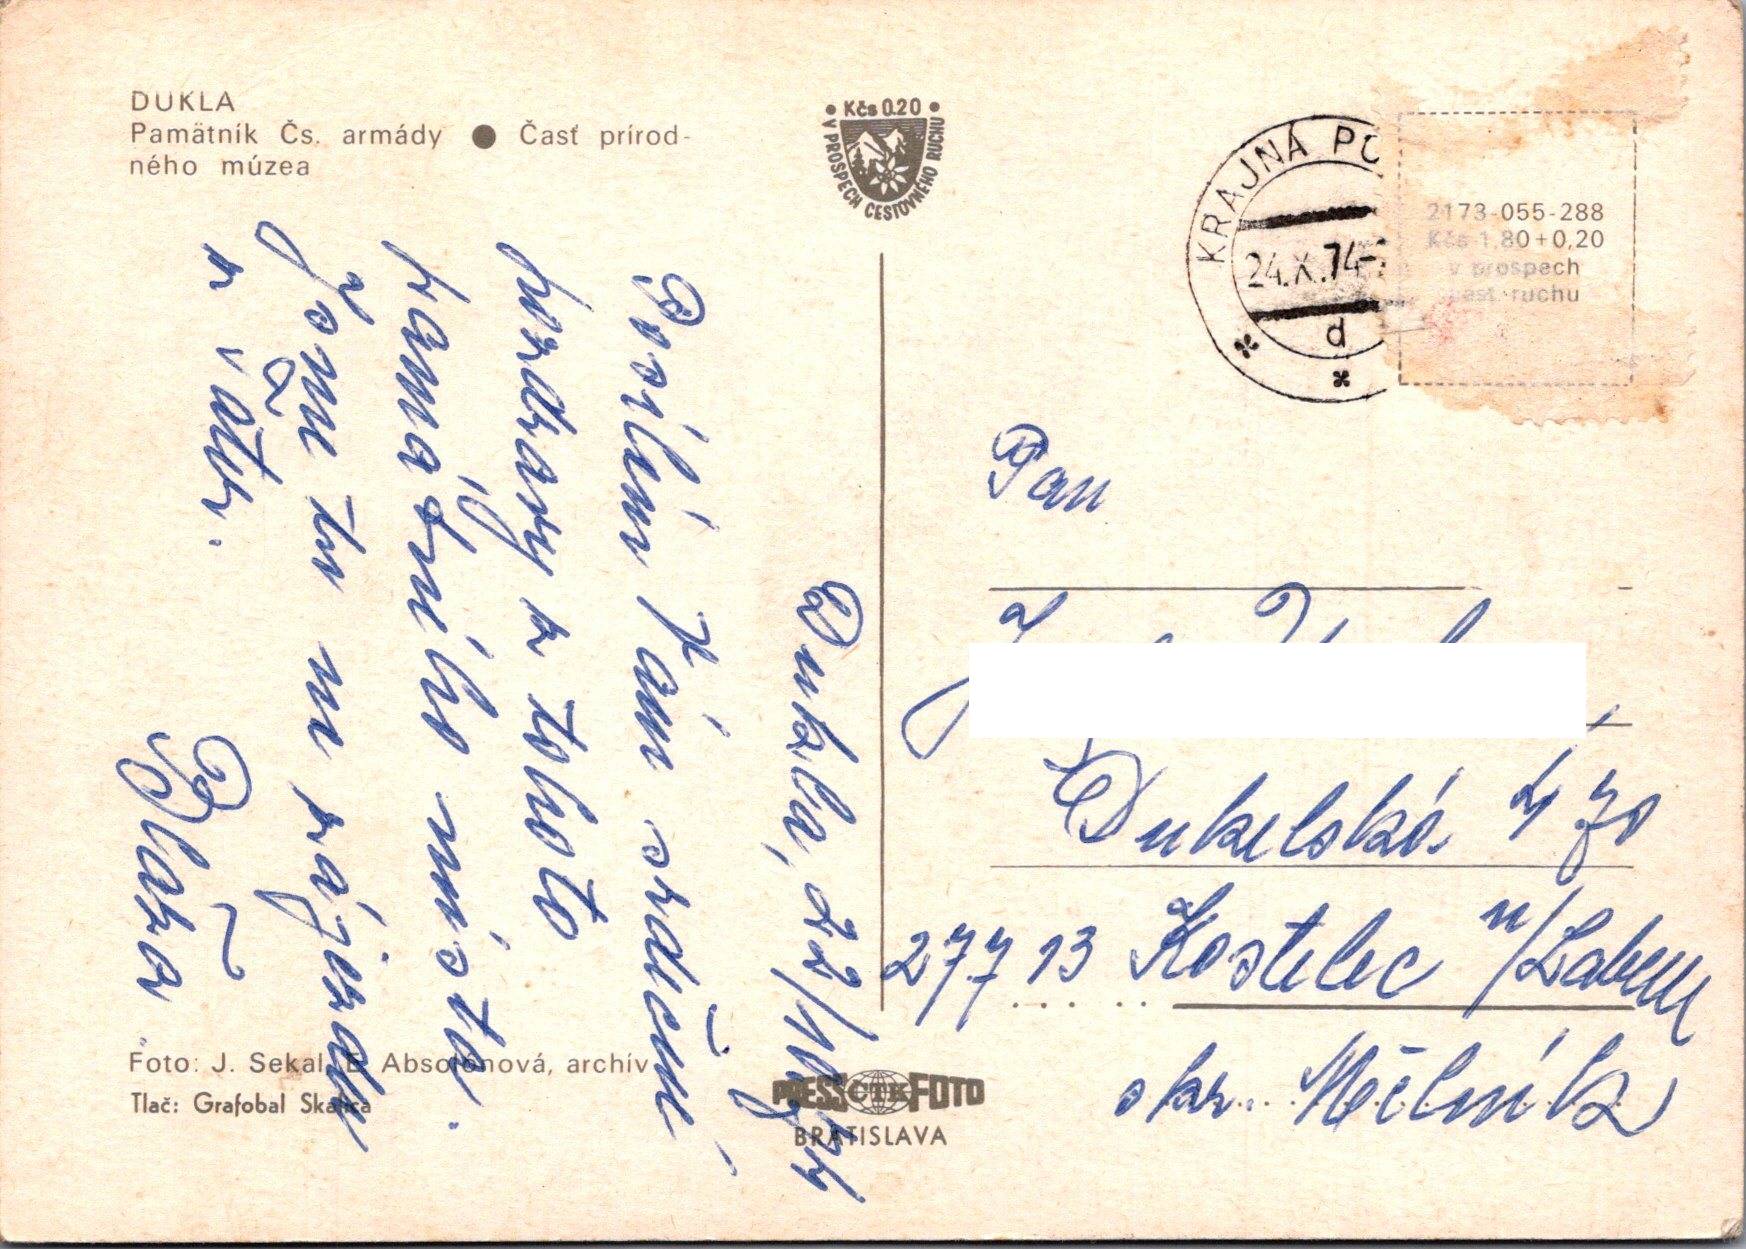 DUKLA
Pamätník Čs. armády ● Časť prírod-
ného múzea
• Kčs 0.20 •
V PROSPECH CESTOVNÉHO RUCHU
KRAJNÁ PO
24.X.74-
d
2173-055-288
Kčs 1,80+0,20
v prospech
cest. ruchu
Dukla, 22/10 74
Posílám Vám srdečné
pozdravy z tohoto
památného místa.
Jsme tu na zájezdu
Blaža
Pan
Dukelská 470
277 13 Kostelec n/Labem
okr. Mělník
Foto: J. Sekal, E. Absolónová, archív
Tlač: Grafobal Skalica
PRESS ČTK FOTO
BRATISLAVA